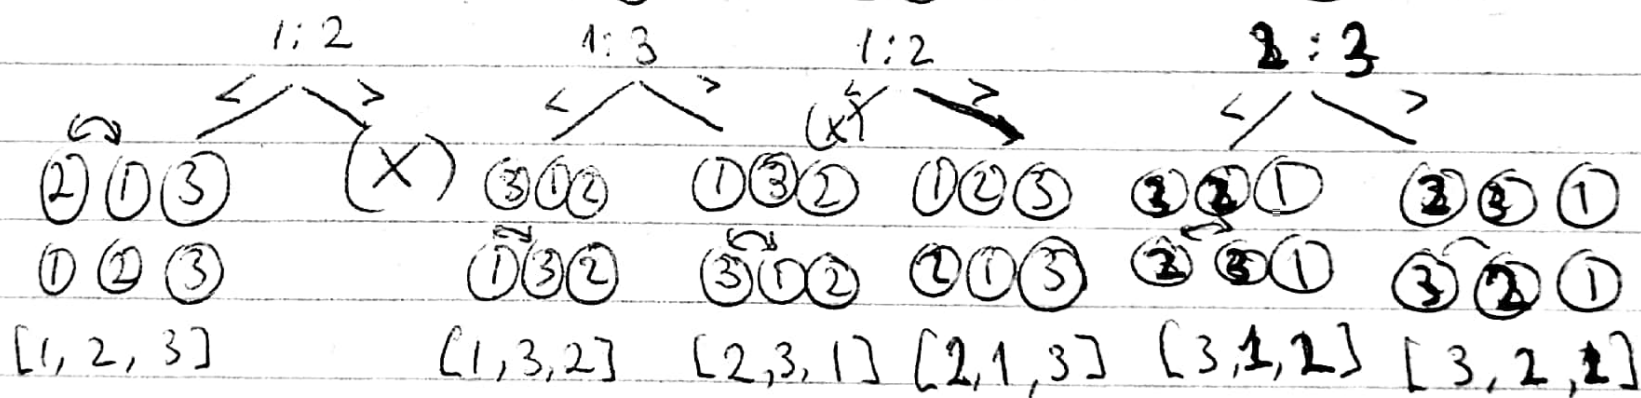 1:2 1:3 1:2 2:3
< > < > < > < >
(X)
2 1 3 (X) 3 1 2 1 3 2 1 2 3 3 2 1 2 3 1
1 2 3 1 3 2 3 1 2 2 1 3 2 3 1 3 2 1
[1, 2, 3] [1,3,2] [2,3,1] [2,1,3] [3,1,2] [3,2,1]